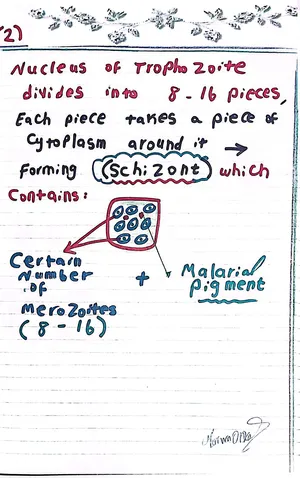 (2)
Nucleus of Trophozoite
divides into 8-16 pieces,
Each piece takes a piece of
Cytoplasm around it →
Forming (Schizont) which
Contains:
Certain
Number
of
Merozoites
(8-16)
+
Malarial
pigment